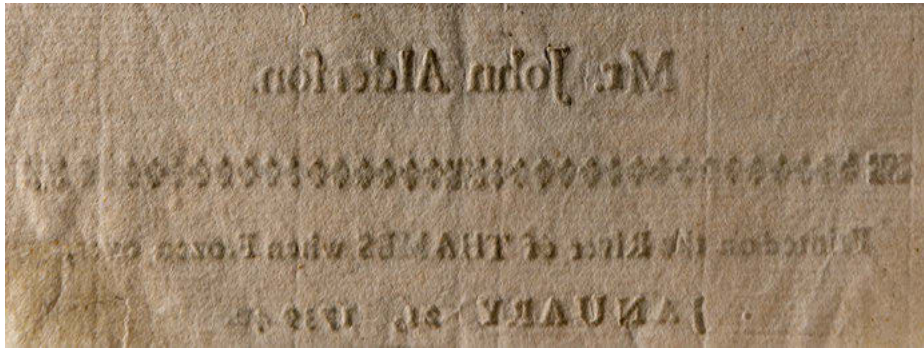 Mr. John Alderſon.
Printed on the River of THAMES when Frozen over,
JANUARY 21, 1739